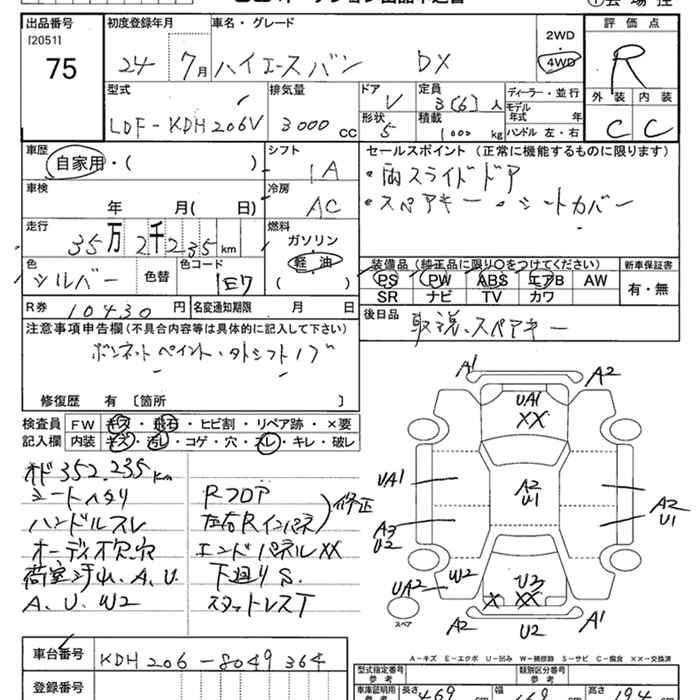 出品番号 初度登録年月 車名・グレード 評価点
[2051] 24年 7月 ハイエースバン DX 2WD 4WD R
75
型式 排気量 ドア 定員 ディーラー・並行 外装 内装
LDF-KDH206V 3000cc V 3(6)人 モデル年式 年式
形状 積載 ハンドル 左・右 C C
5 1000kg
車歴 シフト セールスポイント(正常に機能するものに限ります)
自家用・( ) IA ・両スライドドア
車検 冷房 ・スペアキー・シートカバー
年 月( 日) AC
走行 燃料
35万2千235km ガソリン
軽油
色 色替 色コード ( ) 装備品(純正品に限り○をつけてください) 新車保証書
シルバー 1E7 PS PW ABS エアB AW 有・無
SR ナビ TV カワ
R券 10430円 名変通知期限 月 日 後日品
取説、スペアキー
注意事項申告欄(不具合内容等は具体的に記入して下さい)
ボンネットペイント・
修復歴 有 [箇所 ]
検査員 FW キズ・飛石・ヒビ割・リペア跡・×要
記入欄 内装 キズ・汚レ・コゲ・穴・スレ・キレ・破レ
オド352.235km
シートヘタリ Rフロア
ハンドルスレ 左右Rインパネ 修正
オーディオ欠穴 エンドパネルXX
荷室汚れ、A、U 下廻りS
A、U、W2 スタットレスT
A1 A2
UA1
XX
UA1 A2 U1 A2 U1
A3 U2
UA2 W2 U3
X XX
スペア A2 U2 A1
A-キズ E-エクボ U-凹み W-補修跡 S-サビ C-腐食 XX-交換済
車台番号 KDH206-8049364
登録番号
型式指定番号 参考 類別区分番号 参考
車庫証明用 参考 長さ 469 cm 幅 169 高さ 194 cm